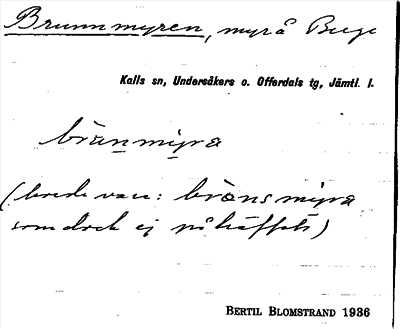 Brunnmyren, myrå Berge
Kalls sn, Undersåkers o. Offerdals tg, Jämtl. l.
brännmyra
(borde vara: bröns myra
som dock ej påträffats)
BERTIL BLOMSTRAND 1936